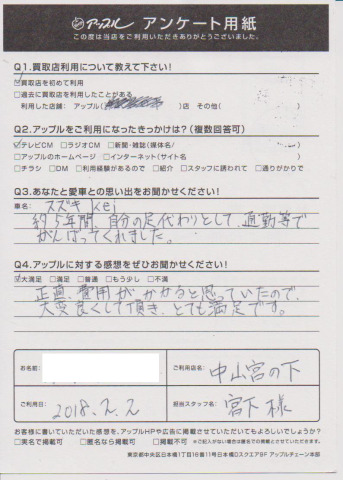 アップル アンケート用紙
この度は当店をご利用いただきありがとうございました。
Q1.買取店利用について教えて下さい!
☑買取店を初めて利用
□過去に買取店を利用したことがある
利用した店舗: アップル( )店 その他( )
Q2.アップルをご利用になったきっかけは?(複数回答可)
☑テレビCM □ラジオCM □新聞・雑誌(媒体名/ )
□アップルのホームページ □インターネット(サイト名 )
□チラシ □DM □利用経験があるので □紹介 □スタッフに誘われて □通りがかりで
Q3.あなたと愛車との思い出をお聞かせください!
車名: スズキ Kei
約5年間、自分の足代わりとして、通勤等で
がんばってくれました。
Q4.アップルに対する感想をぜひお聞かせください!
☑大満足 □満足 □普通 □もう少し □不満
正直、費用がかかると思っていたので、
大変良くして頂き、とても満足です。
お名前:
ご利用店名: 中山宮の下
ご利用日: 2018.2.2
担当スタッフ名: 宮下様
お客様に書いていただいた感想を、アップルHPや広告に掲載させていただいてもよろしいでしょうか?
□実名で掲載可 □匿名なら掲載可 □掲載不可 ※ご記入がない場合は匿名での掲載とさせていただきます。
東京都中央区日本橋1丁目16番11号日本橋Dスクエア8F アップルチェーン本部